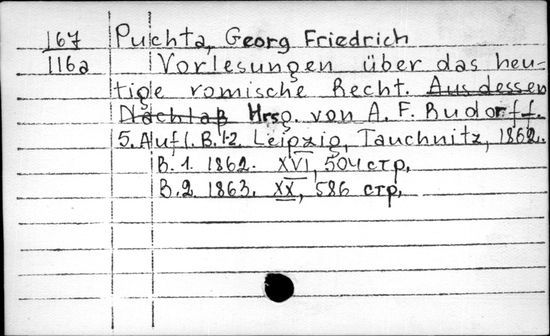 167 Puchta, Georg Friedrich
116a Vorlesungen über das heu-
tige romische Recht. Aus dessen
Nachlaß Hrsg. von A. F. Rudorff.
5. Aufl. B. 1-2. Leipzig, Tauchnitz, 1862.
B. 1. 1862. XVI, 504 стр.
B. 2. 1863. XX, 586 стр.